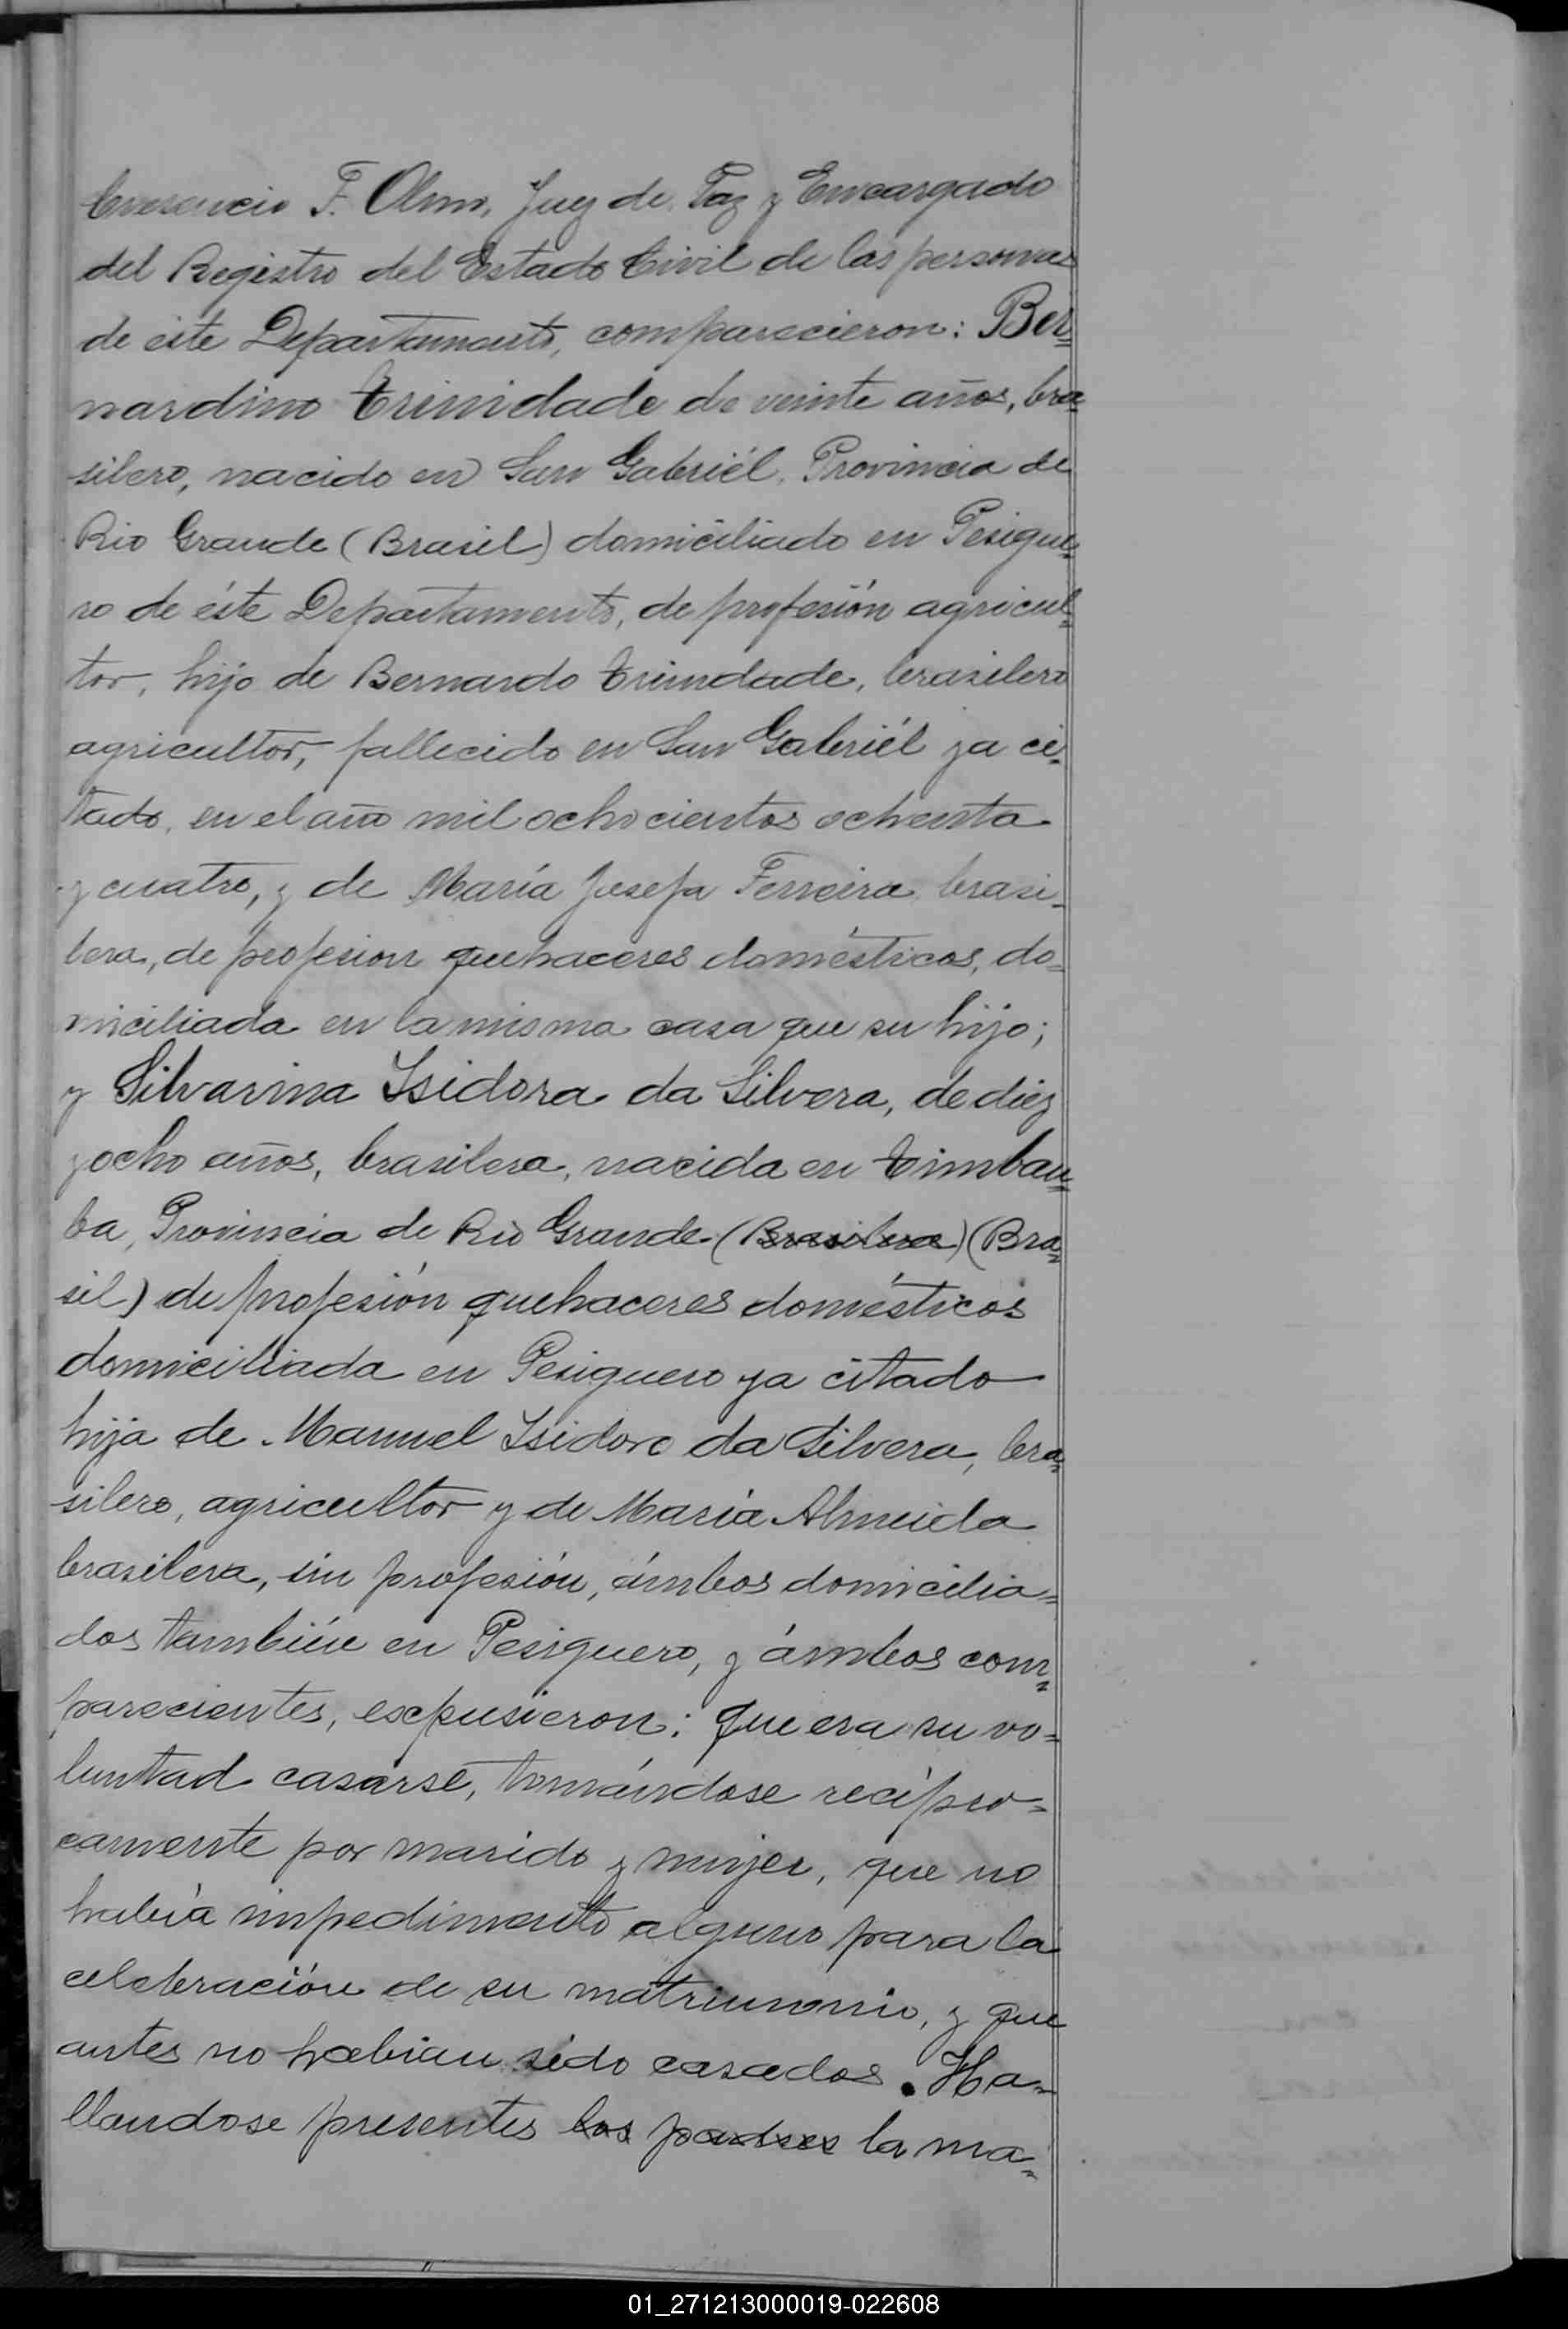 Cresencio F. Olmo, Juez de Paz y Encargado
del Registro del Estado Civil de las personas
de éste Departamento, comparecieron: Ber=
nardino Trinidade de veinte años, bra=
silero, nacido en San Gabriél, Provincia de
Rio Grande (Brasil) domiciliado en Pesigue=
ro de éste Departamento, de profesión agricul=
tor, hijo de Bernardo Trindade, brasilero
agricultor, fallecido en San Gabriél ya ci=
tado, en el año mil ochocientos ochenta
y cuatro, y de María Josefa Ferreira, brasi=
lera, de profesion quehaceres domésticos, do=
miciliada en la misma casa que su hijo;
y Silvarina Isidora da Silvera, de diez
y ocho años, brasilera, nacida en Timbau=
ba, Provincia de Rio Grande (Brasilera) (Bra=
sil) de profesión quehaceres domésticos
domiciliada en Pesiguero ya citado
hija de Manuel Isidoro da Silvera, bra=
silero, agricultor y de María Almeida
brasilera, sin profesión, ámbos domicilia=
dos también en Pesiguero, y ámbos com=
parecientes, expusieron: que era su vo=
luntad casarse, tomándose recípro=
camente por marido y mujer, que no
había impedimento alguno para la
celebración de su matrimonio, y que
antes no habian sido casados. Ha=
llandose presentes los padres la ma=
01_271213000019-022608